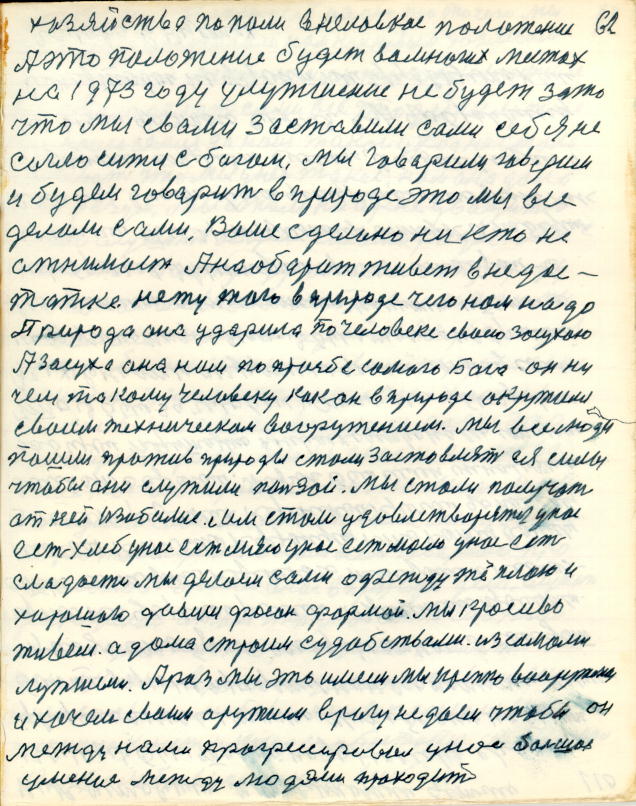 хозяйства попали в неловкое положение 62
А это положение будет вомногих местах
на 1973 году улутшение не будет зато
что мы свами заставили сами себя не
согласити с богом, мы говорили говорим
и будем говорить в природе это мы все
делали сами, Ваше сделано никто не
отнимает А наоборот живет в недос-
татке. нету того в природе чего нам надо
Природа она ударила по человеке своею засухою
А засуха она нам по прозьбе самого Бога он ни
чем такому человеку как он в природе окружил
своим техническом вооружением. мы все люди
пошли против природы стали заставлять ея силы
чтобы они служили ползой. Мы стали получать
от ней изобилие. им стали удовлетворятся унас
ест хлеб унас ест мясо унас ест масло унас ест
сладости мы делаем сами одежду тёплаю и
харошаю давши фасон формой. мы красиво
живем. а дома строим судобствами. из самыми
лутшими. А раз мы это имеем мы крепко вооружены
и хочем своим оружием врагу не даем чтоби он
между нами прогрессировал унас большое
умение между людями проходит